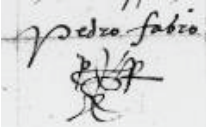 Pedro fabro